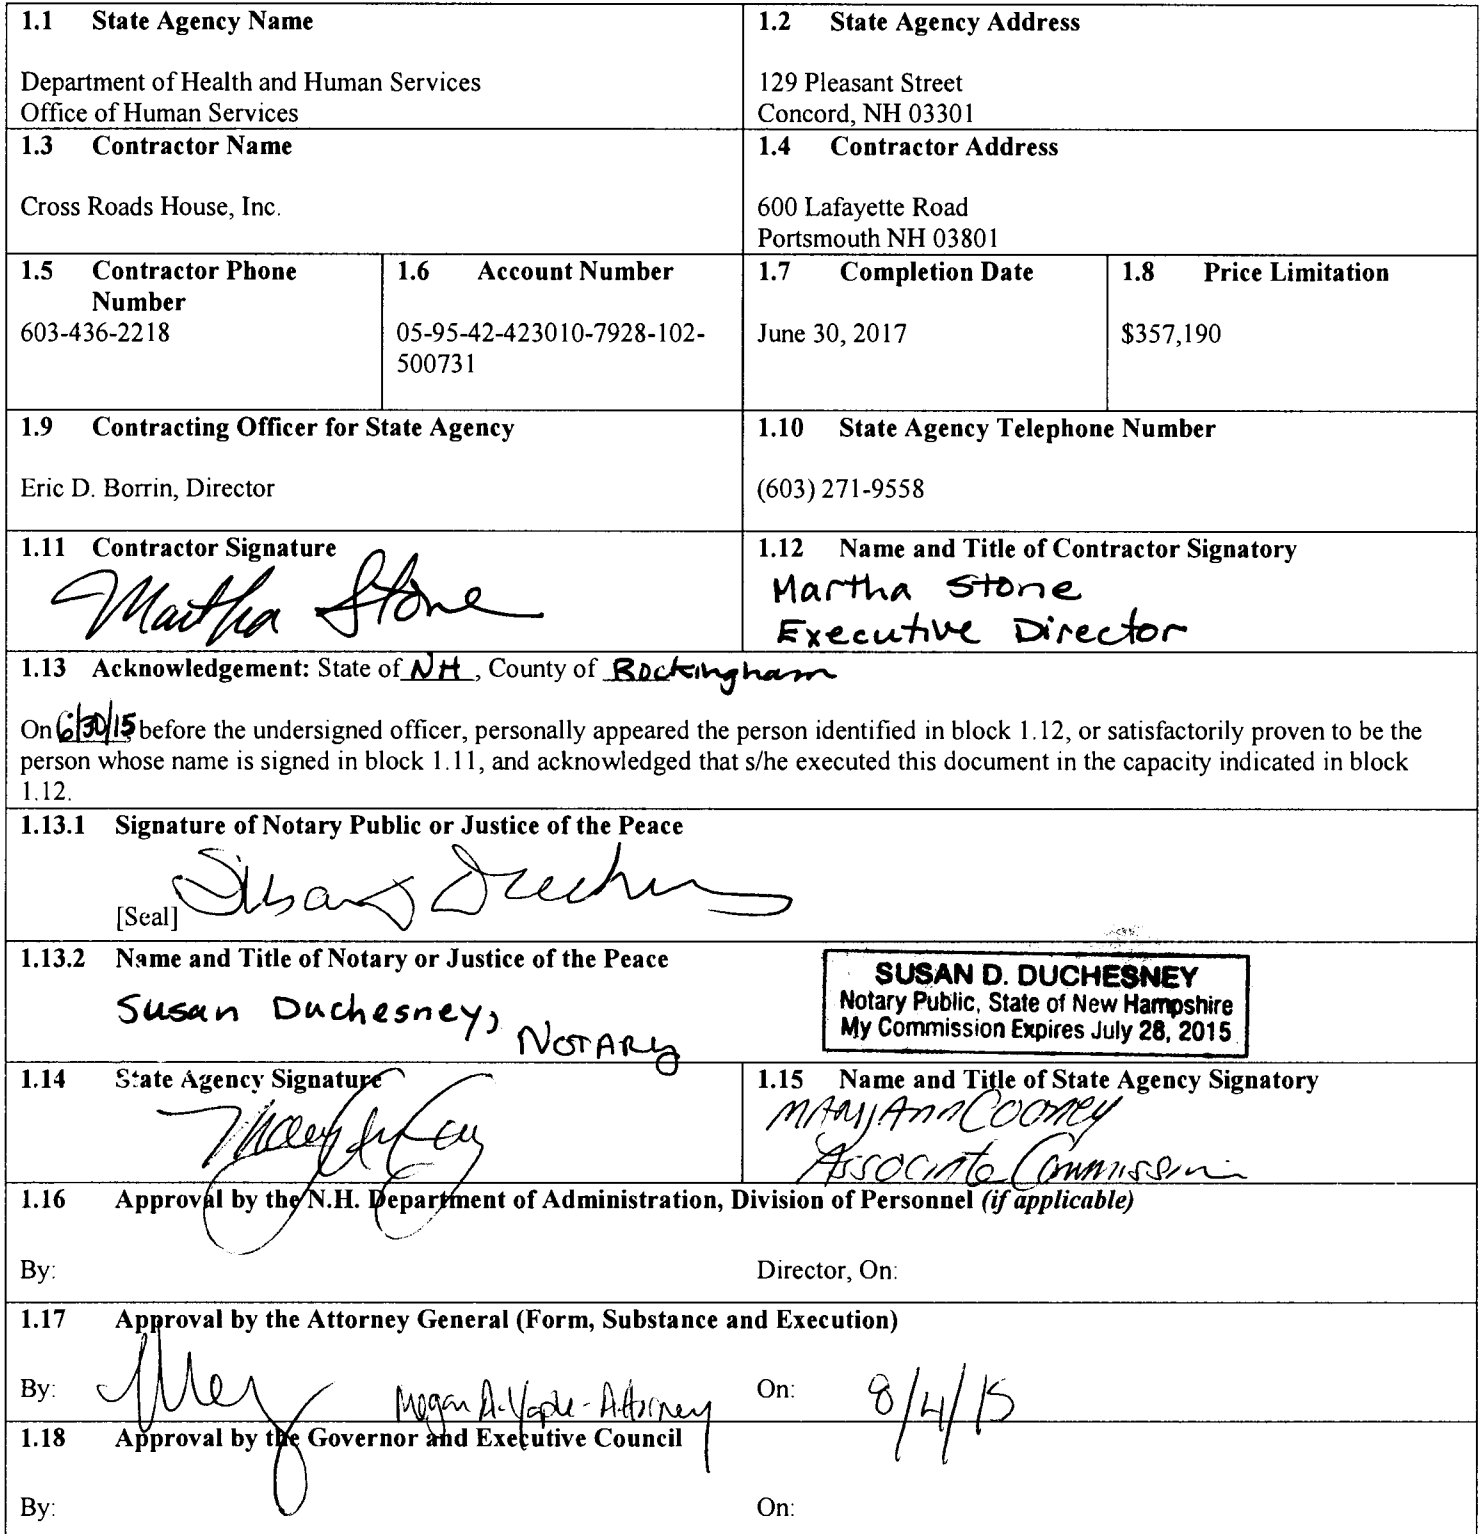 1.1 State Agency Name
Department of Health and Human Services
Office of Human Services
1.2 State Agency Address
129 Pleasant Street
Concord, NH 03301
1.3 Contractor Name
Cross Roads House, Inc.
1.4 Contractor Address
600 Lafayette Road
Portsmouth NH 03801
1.5 Contractor Phone
Number
603-436-2218
1.6 Account Number
05-95-42-423010-7928-102-
500731
1.7 Completion Date
June 30, 2017
1.8 Price Limitation
$357,190
1.9 Contracting Officer for State Agency
Eric D. Borrin, Director
1.10 State Agency Telephone Number
(603) 271-9558
1.11 Contractor Signature
Martha Stone
1.12 Name and Title of Contractor Signatory
Martha Stone
Executive Director
1.13 Acknowledgement: State of NH, County of Rockingham
On 6/30/15 before the undersigned officer, personally appeared the person identified in block 1.12, or satisfactorily proven to be the
person whose name is signed in block 1.11, and acknowledged that s/he executed this document in the capacity indicated in block
1.12.
1.13.1 Signature of Notary Public or Justice of the Peace
[Seal] Susan
1.13.2 Name and Title of Notary or Justice of the Peace
Susan Duchesney,
NOTARY
SUSAN D. DUCHESNEY
Notary Public, State of New Hampshire
My Commission Expires July 28, 2015
1.14 State Agency Signature
1.15 Name and Title of State Agency Signatory
MARY Ann Cooney
Associate
1.16 Approval by the N.H. Department of Administration, Division of Personnel (if applicable)
By:
Director, On:
1.17 Approval by the Attorney General (Form, Substance and Execution)
By: Megan A. - Attorney
On: 8/4/15
1.18 Approval by the Governor and Executive Council
By:
On: